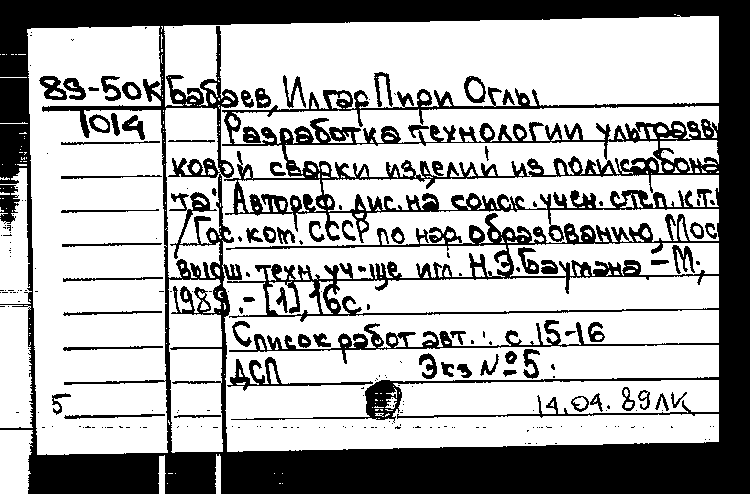 89-50К Бабаев, Илгар Пири Оглы
1014 Разработка технологии ультразву
ковой сварки изделий из поликарбона
та: Автореф. дис. на соиск. учен. степ. к.т.н
/ Гос. ком. СССР по нар. образованию, Мос
высш. техн. уч-ще им. Н.Э.Баумана. - М.,
1989. - [1], 16 с.
Список работ авт.: с. 15-16
ДСП Экз № 5.
5 14.04.89 ЛК